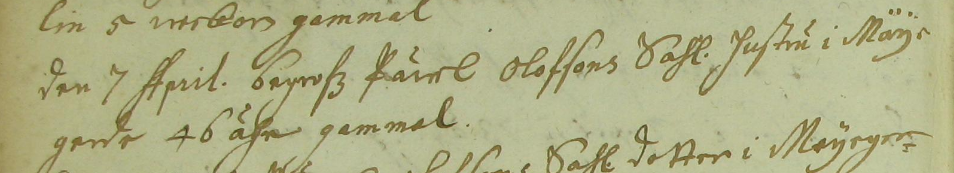 lin 5 weckors gammal
den 7 April. begrofz Påwel Olofsons Sahl. Hustru i Måÿe
gerde 46 åhr gammal.
Sahl. dotter i Måÿeger=